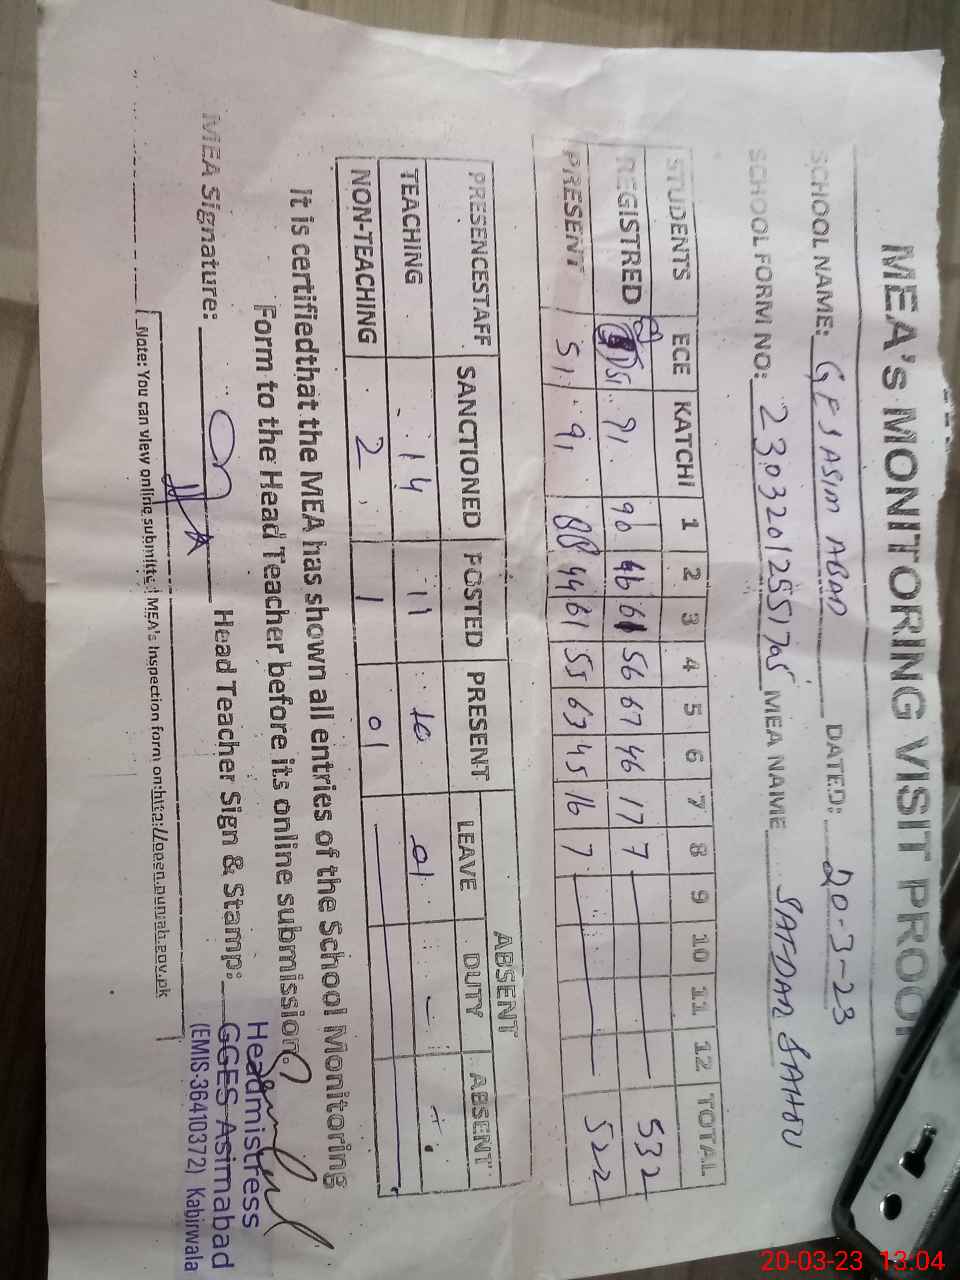 MEA's MONITORING VISIT PROOF
SCHOOL NAME: ASIM ABAD DATED: 20-3-23
SCHOOL FORM NO: MEA NAME
STUDENTS ECE KATCHI 1 2 3 4 5 6 7 8 9 10 11 12 TOTAL
REGISTRED 51 91 90 46 61 56 67 46 17 7 532
PRESENT 51 91 88 44 61 55 63 45 16 7 522
ABSENT
PRESENCESTAFF SANCTIONED POSTED PRESENT LEAVE DUTY ABSENT
TEACHING 14 11 10 01 - -
NON-TEACHING 2 1 01
It is certifiedthat the MEA has shown all entries of the School Monitoring
Form to the Head Teacher before its online submission.
MEA Signature: Head Teacher Sign & Stamp:
Headmistress
GGES Asimabad
(EMIS:36410372) Kabirwala
Note: You can view online submitted MEA's Inspection form on:http://open.punjab.gov.pk
20-03-23 13:04